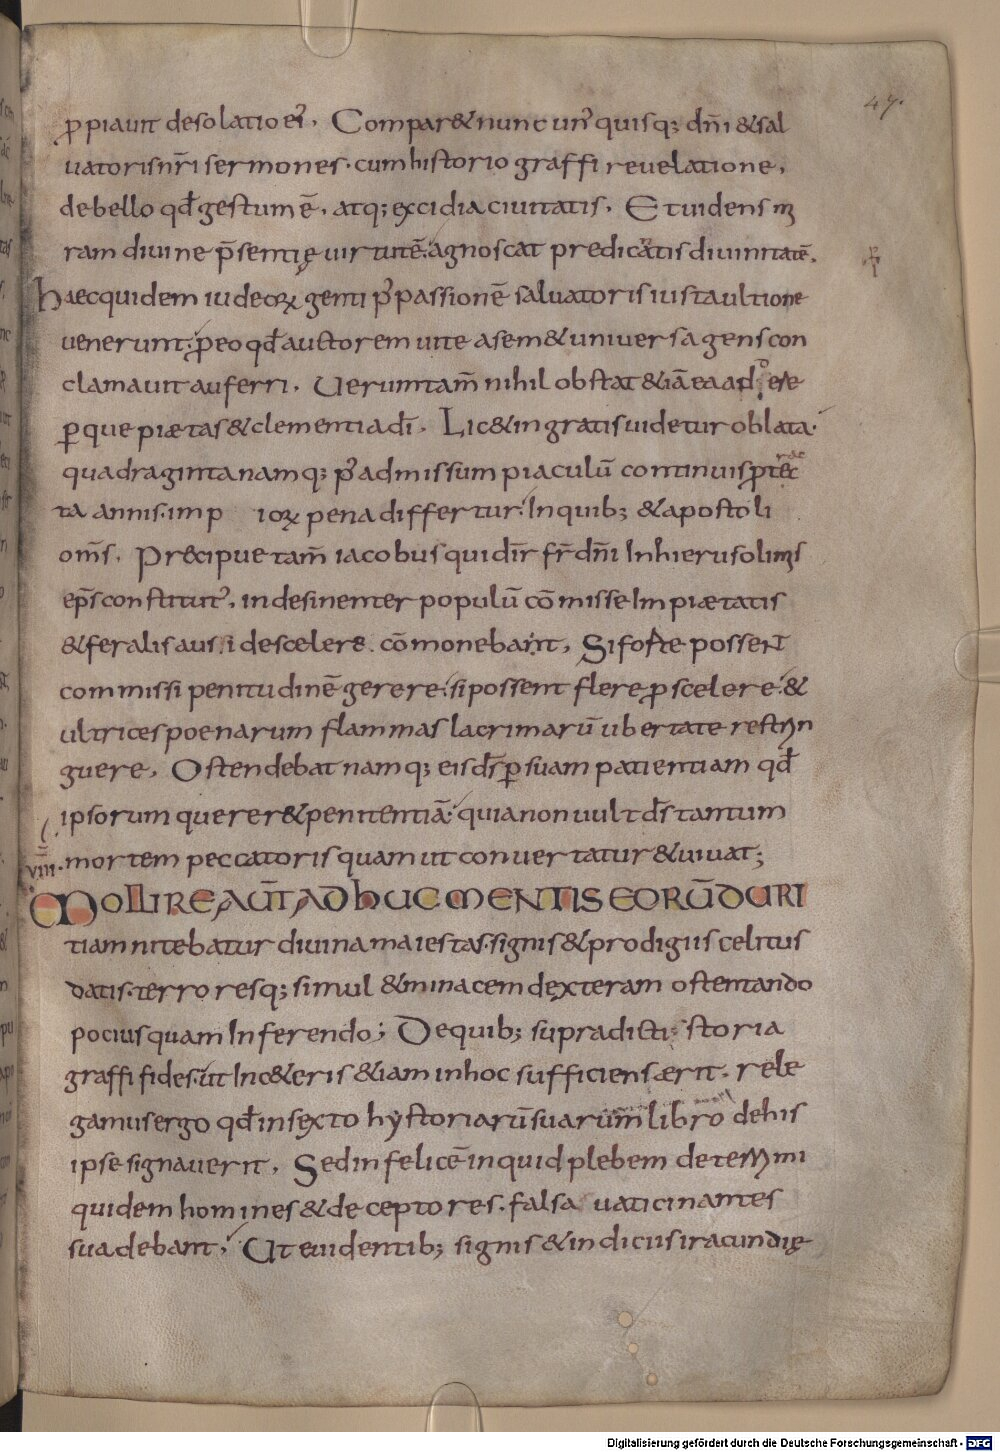 47.
ꝓpiauit desolatio eiꝰ. Compar&nunc unꝰquisq; dn̄i &sal
uatoris nr̄i sermones. cum historio graffi reuelatione.
de bello qd̄ gestum ē. atq; excidia ciuitatis. Et uidens mi
ram diuine p̄sentię uirtutē. agnoscat predicatis diuinitatē.
haec quidem iudeoꝝ genti pꝰ passionē saluatoris iusta ultione
uenerunt. ꝓ eo qd̄ auctorem uite a sem& uniuersa gens con
clamauit auferri. Ueruntam̄ nihil obstat &iā ea ad
ꝑ que piætas & clementia dī. Lic& ingratis uidetur oblata.
quadraginta namq; pꝰ admissum piaculū continuis
ta annis. imp ioꝝ pena differtur. In quib; & apostoli
om̄s. Precipue tam̄ iacobus qui dīr fr̄ dn̄i In hierusolimis
ep̄s constitutꝰ. indesinenter populū cōmisse Impiætatis
& feralis ausi de scelere cōmonebant. Si forte possent
commissi penitudinē gerere. si possent flere ꝓ scelere. &
ultrices poenarum flammas lacrimarū ubertate restin
guere. Ostendebat namq; eis ds̄ ꝑ suam patientiam qd̄
ipsorum querer& penitentiā. quia non uult ds̄ tantum
mortem peccatoris quam ut conuertatur & uiuat;
VIIII.
MOLLIRE AUT̄ ADHUC MENTIS EORŪ DURI
tiam nitebatur diuina maiestas. signis & prodigiis celitus
datis. terroresq; simul & minacem dexteram ostentando
pocius quam Inferendo; De quib; supradicti storia
graffi fides. ut Inc&eris &iam in hoc sufficiens ærit. rele
gamus ergo qd̄ in sexto hystoriarū suarum libro de his
ipse signauerit. Sed infelicē inquid plebem deterrimi
quidem homines & deceptores. falsa uaticinantes
suadebant. Ut euidentib; signis & indiciis iracundię
Digitalisierung gefördert durch die Deutsche Forschungsgemeinschaft - DFG